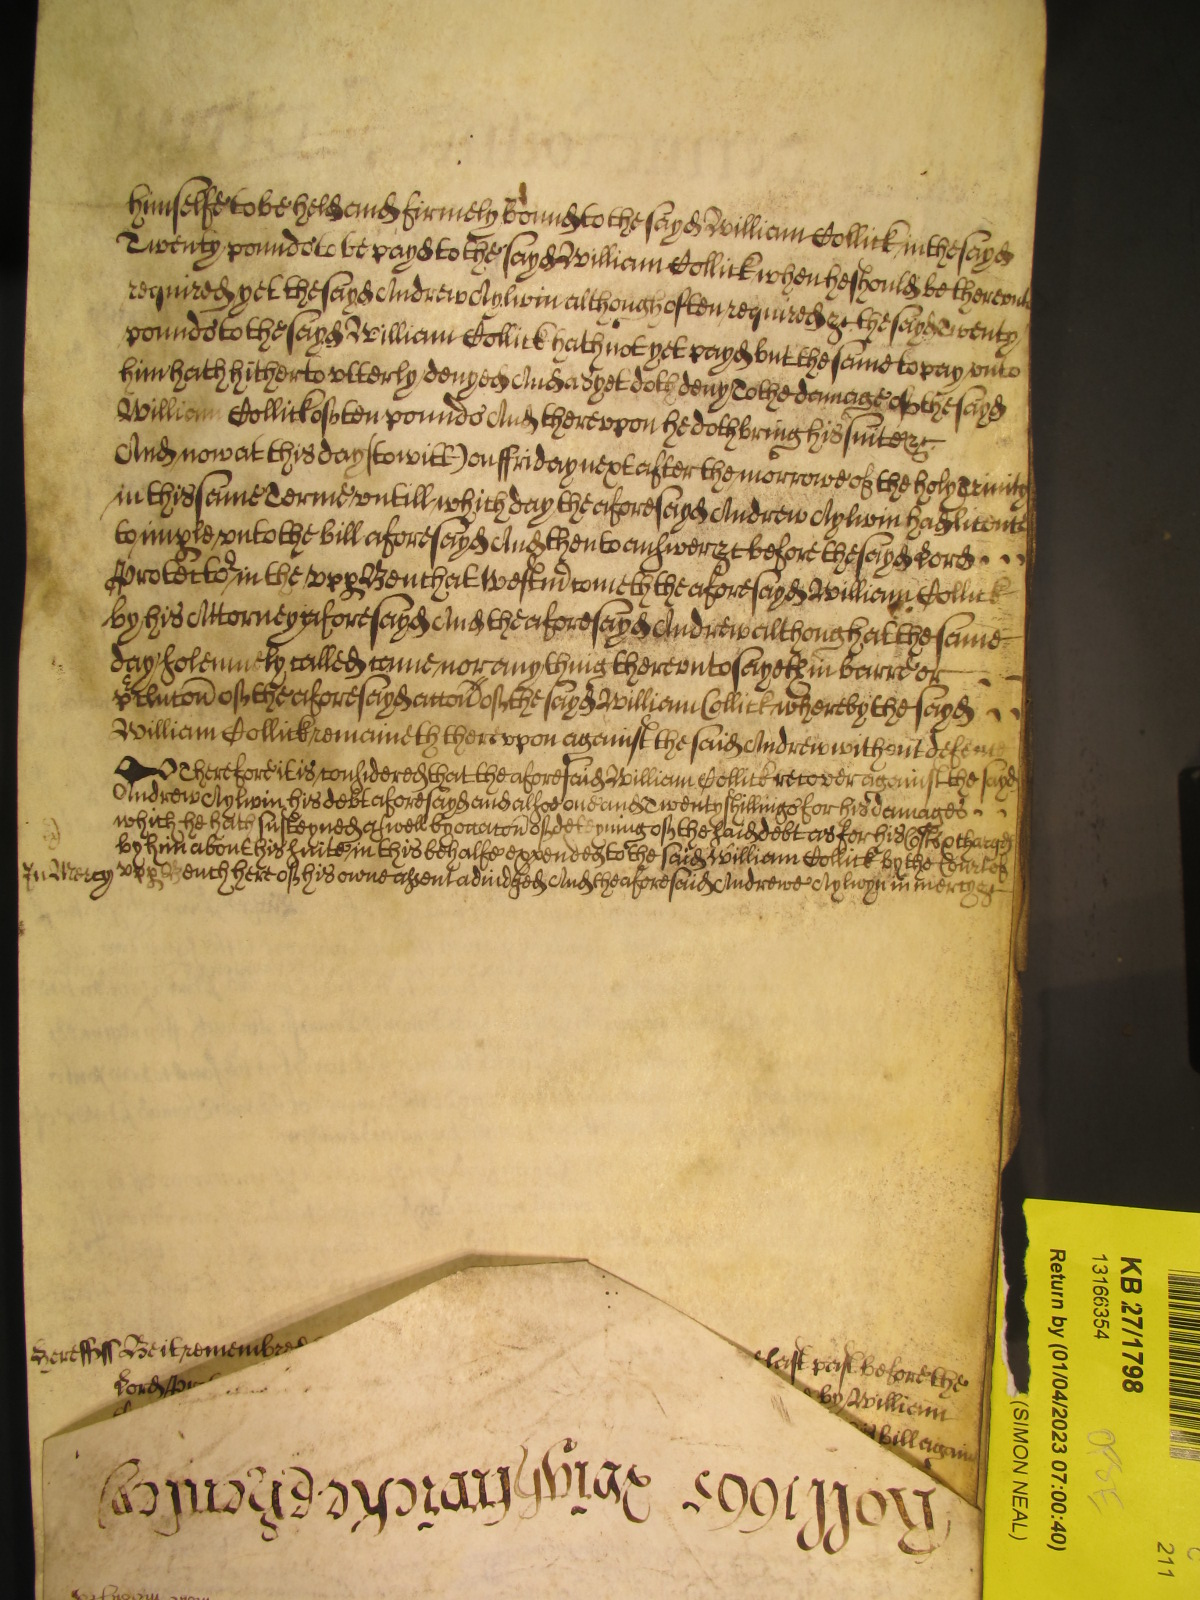 himselfe to be held and firmely bound to the sayd William Collick in the sayd
Twenty pounds to be payd to the sayd William Collick when he should be thereunto
required yet the sayd Andrew Aylwin although often required &c the sayd Twenty
pounds to the sayd William Collick hath not yet payd but the same to pay unto
him hath hitherto utterly denyed And as yet doth deny To the damage of the sayd
William Collick of ten pounds And thereupon he doth bring his suite &c
And now at this day (to witt) on ffriday next after the morrowe of the holy Trinity
in this same Terme untill which day the aforesayd Andrew Aylwin had licence
to imple unto the bill aforesayd And then to answer &c before the sayd Lord
Protector in the upp Bench at Westm cometh the aforesayd William Collick
by his Attorney aforesayd And the aforesayd Andrew although at the same
day solemnely called came nor any thing thereunto sayeth in barre or
of the aforesayd accon of the sayd William Collick whereby the sayd
William Collick remaineth thereupon against the said Andrew without defence
Therefore it is considered that the aforesaid William Collick recover against the sayd
Andrew Aylwin his debt aforesayd and alsoe one and Twenty shillings for his damages
which he hath susteyned aswell by occacon of deteyning of the said debt as for his Costs & charges
by him about his suite in this behalfe expended to the said William Collick by the Court of
In Mercy upp Bench here of his owne assent adiudged And the aforesaid Andrewe Aylwyn in mercy &c
Hereff ss Be it remembred last past before the
Lord by William
bill against
Roll 1665
KB 27/1798
13166354
Return by (01/04/2023 07:00:40)
(SIMON NEAL)
211